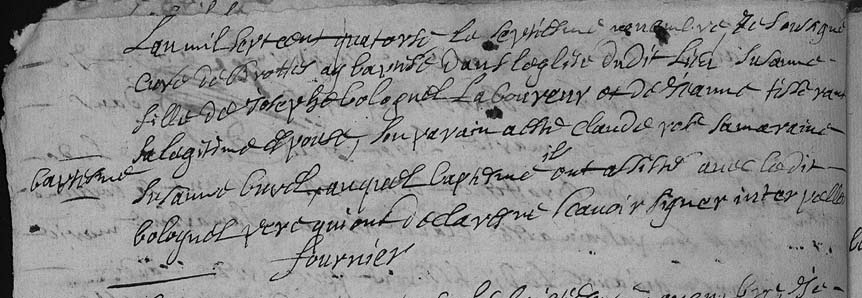 L'an mil sept cent quatorse le septiesme novembre Je soussigné
curé de Brottes ay baptisé dans l'eglise dudit lieu Susanne
fille de Josephe bolognel Laboureur et de Jeanne
sa legitime Epouse, son parain a esté claude sa maraine
baptesme
Susanne auquel baptesme il ont assisté avec ledit
bolognel pere qui ont declaré ne scavoir signer interpellé
fournier